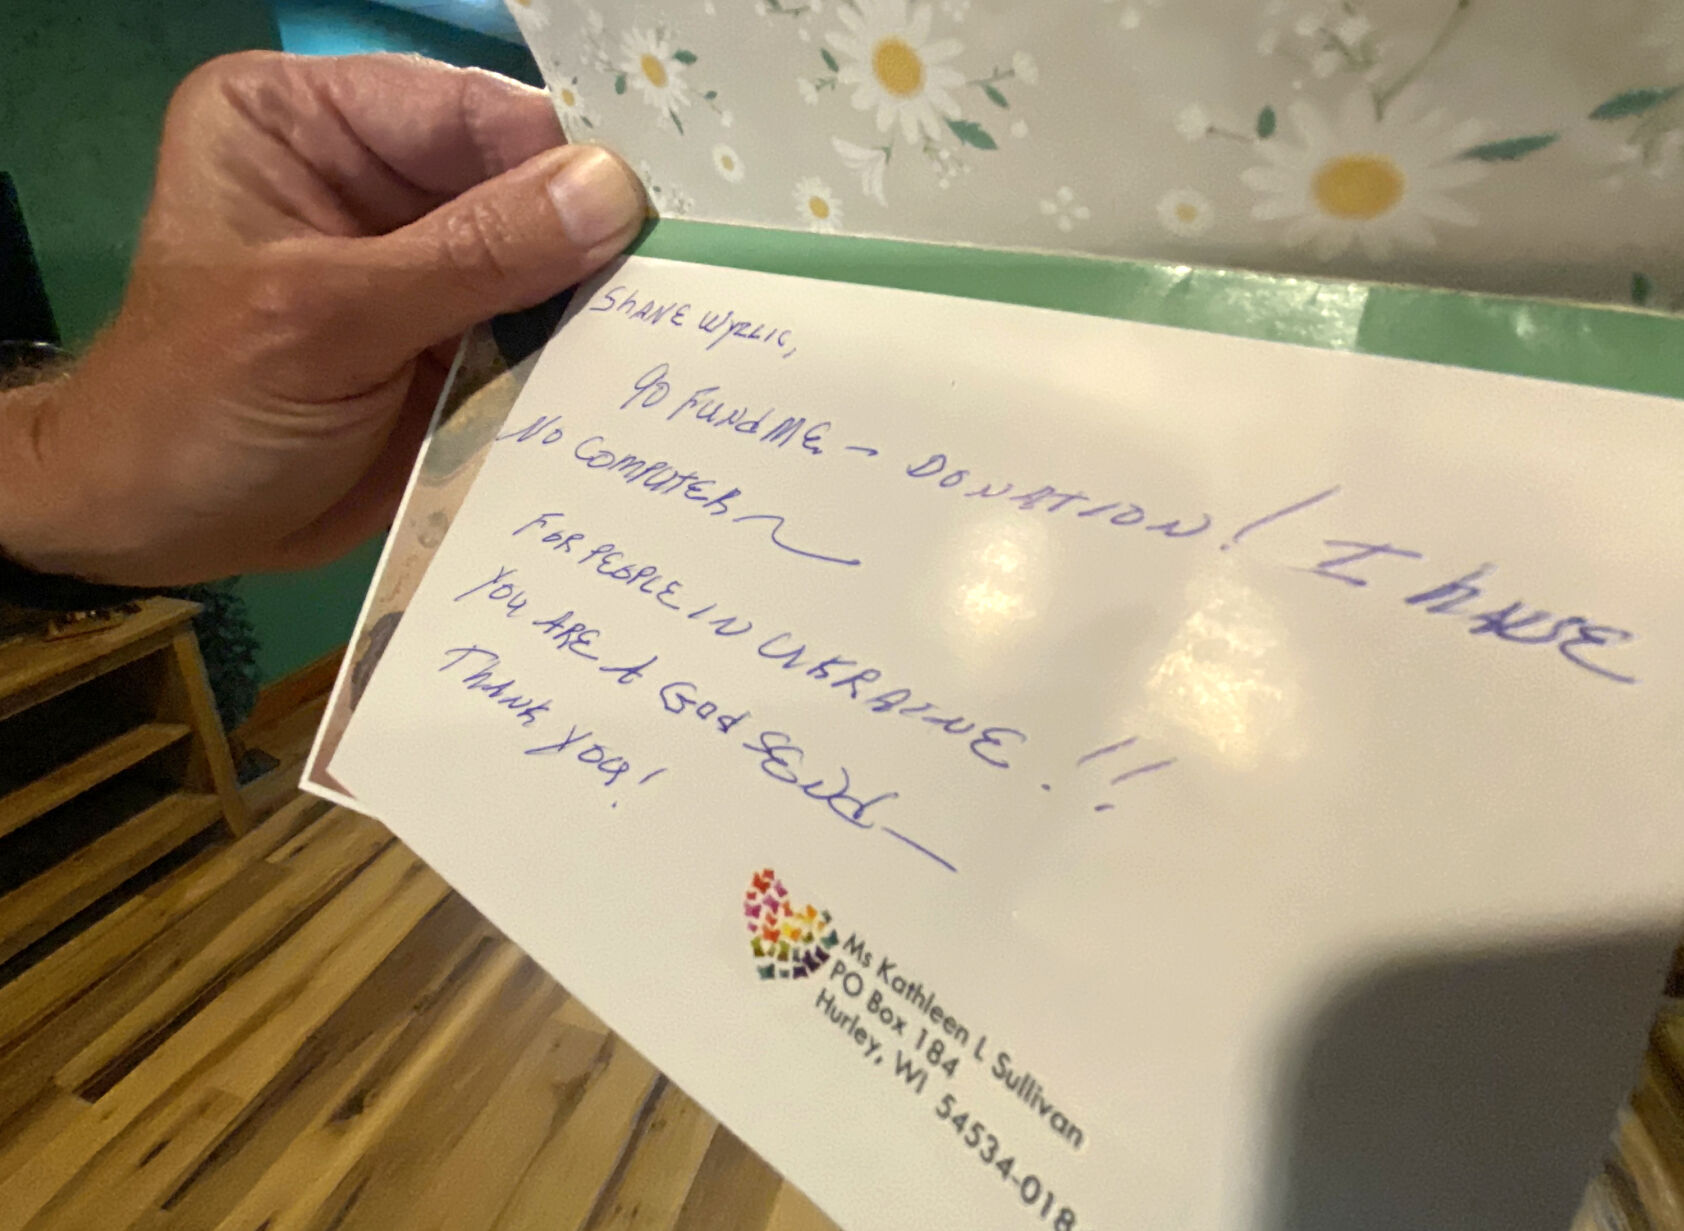 SHANE WYLLIC,
GO FUNDME. — DONATION! I HAVE
NO COMPUTER
FOR PEOPLE IN UKRAINE.!!
YOU ARE A God SENd —
THANK YOU!
Ms Kathleen L Sullivan
PO Box 184
Hurley, WI 54534-018